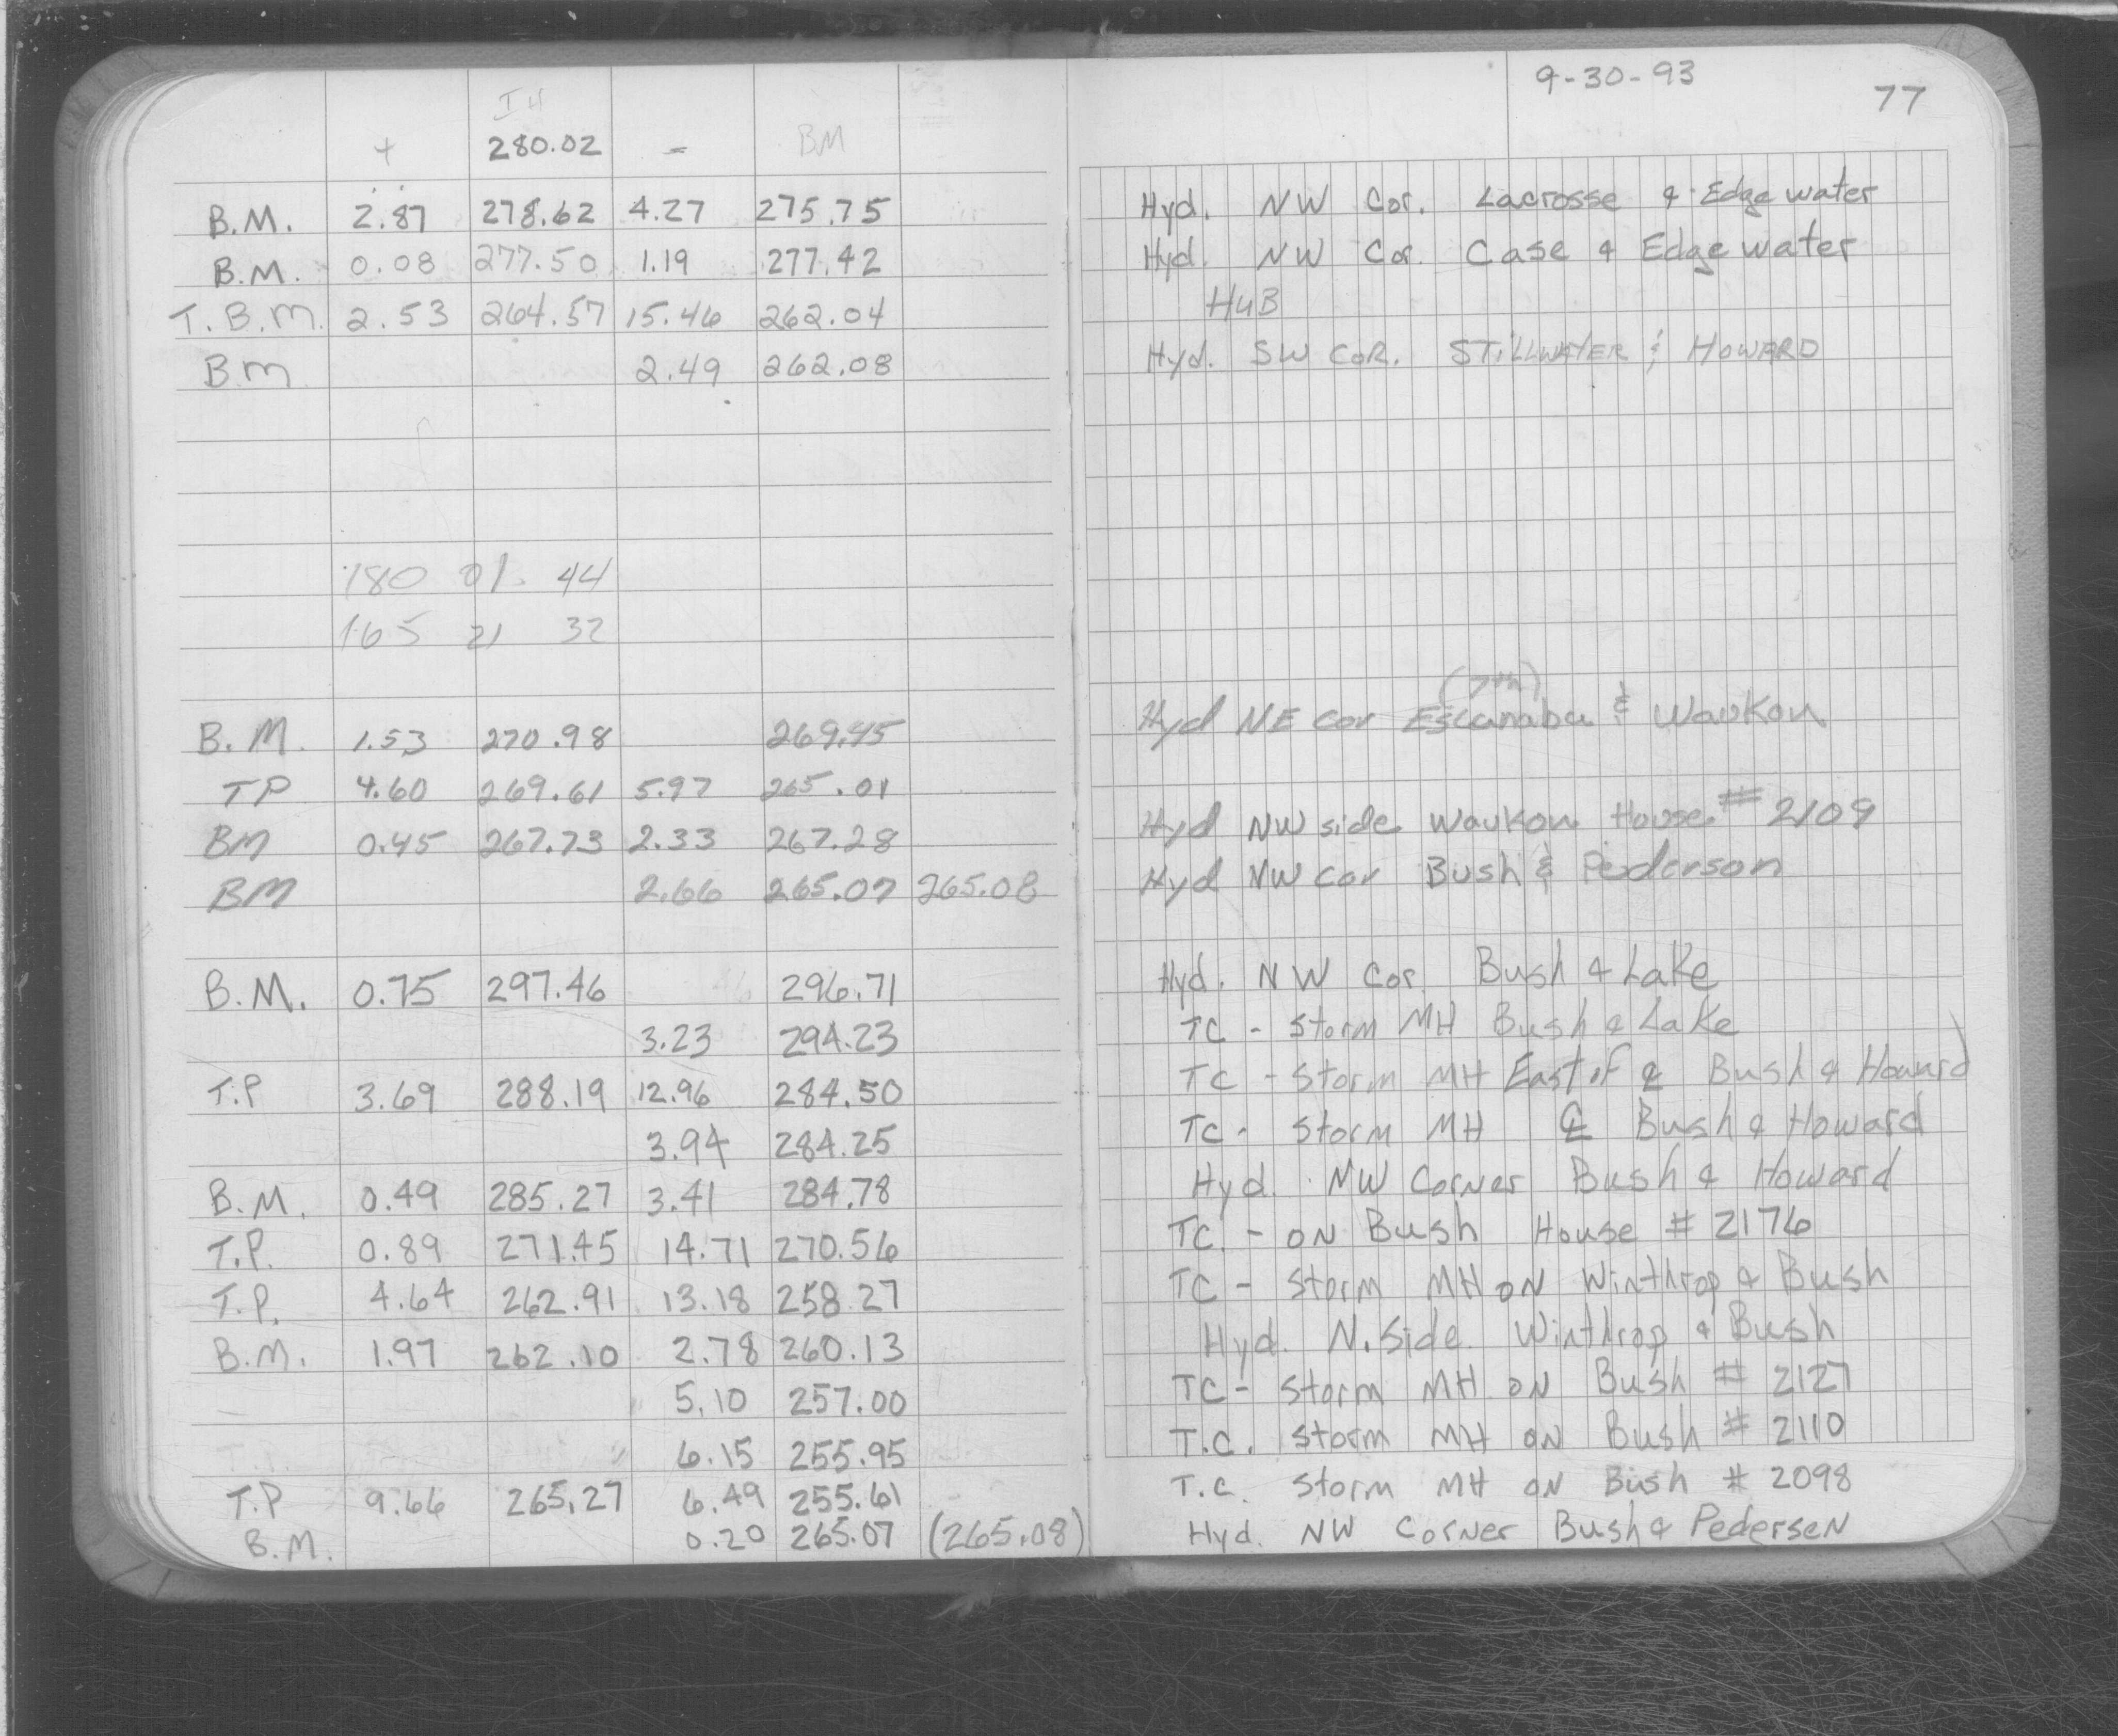 9-30-93
77
IH
+ 280.02 - BM
B.M. 2.87 278.62 4.27 275.75 Hyd. NW Cor. Lacrosse & Edgewater
B.M. 0.08 277.50 1.19 277.42 Hyd. NW Cor. Case & Edgewater
T.B.M. 2.53 264.57 15.46 262.04 HuB
Bm 2.49 262.08 Hyd. SW COR. STILLWATER & HOWARD
180 01. 44
165 21 32
(7th)
B.M. 1.53 270.98 269.45 Hyd NE cor Escanaba & Waukon
TP 4.60 269.61 5.97 265.01
BM 0.45 267.73 2.33 267.28 Hyd NW side Waukon House # 2109
BM 2.66 265.07 265.08 Hyd NW cor Bush & Pederson
B.M. 0.75 297.46 296.71 Hyd. NW Cor. Bush & Lake
3.23 294.23 TC - Storm MH Bush & Lake
T.P 3.69 288.19 12.96 284.50 TC - Storm MH East of ℄ Bush & Howard
3.94 284.25 TC - Storm MH ℄ Bush & Howard
B.M. 0.49 285.27 3.41 284.78 Hyd. NW Corner Bush & Howard
T.P. 0.89 271.45 14.71 270.56 TC. - ON Bush House # 2176
T.P. 4.64 262.91 13.18 258.27 TC - Storm MH ON Winthrop & Bush
B.M. 1.97 262.10 2.78 260.13 Hyd. N. Side Winthrop & Bush
5.10 257.00 TC - Storm MH ON Bush # 2127
6.15 255.95 T.C. Storm MH ON Bush # 2110
T.P 9.66 265.27 6.49 255.61 T.C. Storm MH ON Bush # 2098
B.M. 0.20 265.07 (265.08) Hyd. NW Corner Bush & Pedersen